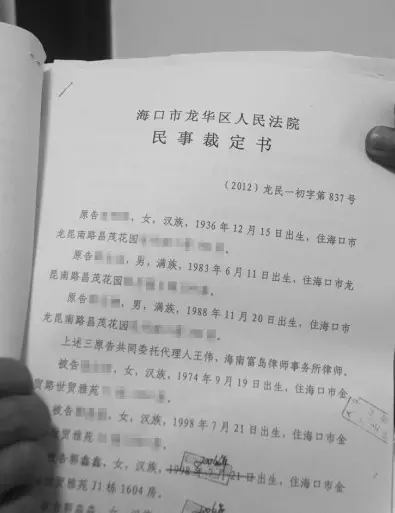 海口市龙华区人民法院
民事裁定书
（2012）龙民一初字第 837 号
原告，女，汉族，1936 年 12 月 15 日出生，住海口市
龙昆南路昌茂花园
原告，男，满族，1983 年 6 月 11 日出生，住海口市龙
昆南路昌茂花园
原告，男，满族，1988 年 11 月 20 日出生，住海口市
龙昆南路昌茂花园
上述三原告共同委托代理人王伟，海南富岛律师事务所律师。
被告，女，汉族，1974 年 9 月 19 日出生，住海口市金
贸路世贸雅苑
被告，女，汉族，1998 年 7 月 21 日出生，住海口市金
世贸雅苑
被告郭鑫鑫，女，汉族，21 日出生，住海口市金
世贸雅苑 J1 栋 1604 房。